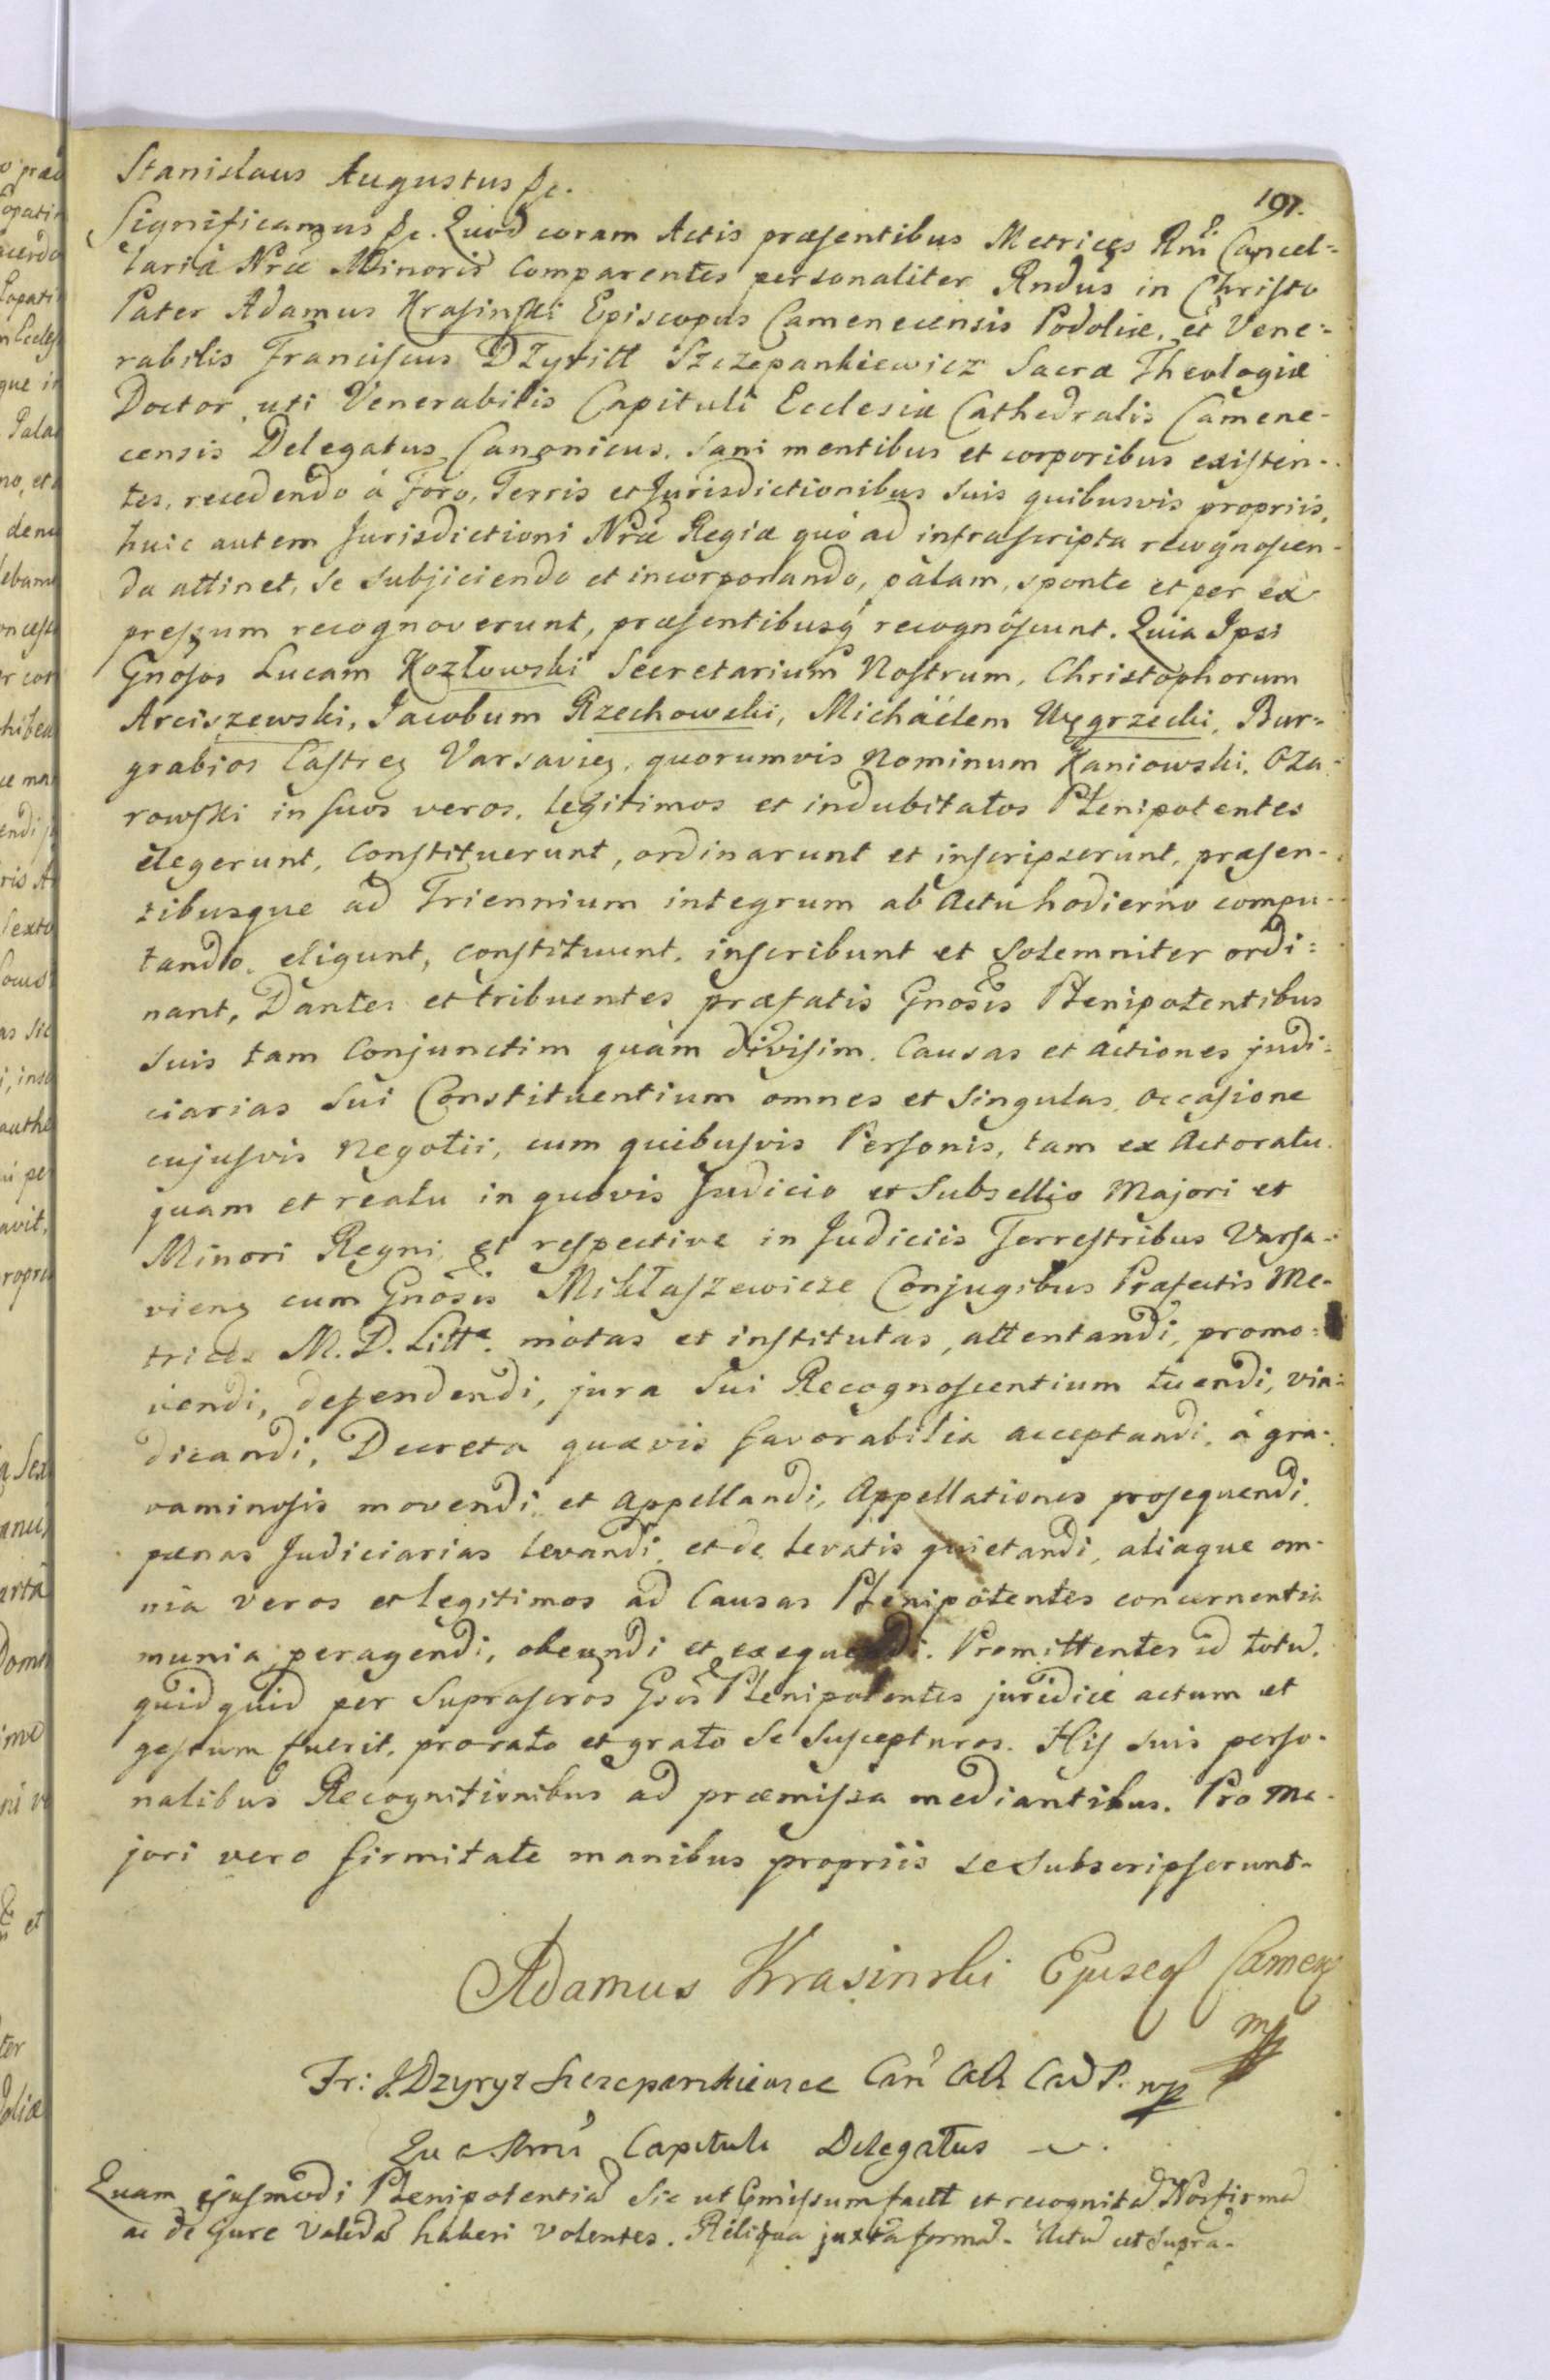 197.
Stanislaus Augustus &c.
Significamus &c. Quod coram Actis præsentibus Metrices Rni Cancel=
lariæ Nræ Minoris Comparentes personaliter Rndus in Christo
Pater Adamus Krasinski Episcopus Camenecensis Podoliæ, et Vene=
rabilis Franciscus Dżyritt Szczepankiewicz Sacræ Theologiæ
Doctor uti Venerabilis Capituli Ecclesiæ Cathedralis Camene-
censis Delegatus, Canonicus. Sani mentibus et corporibus existen-
tes, recedendo á Foro, Terris et Jurisdictionibus Suis quibusvis propriis,
huic autem Jurisdictioni Nræ Regiæ quò ad infrascripta recognoscen-
da attinet, Se Subjiciendo et incorporando, palam, sponte et per ex
pressum recognoverunt, præsentibusq recognoscunt. Quia Ipsi
Gnosos Lucam Kozłowski Secretarium Nostrum, Christophorum
Arciszewski, Jacobum Rzechowski, Michaëlem Węgrzecki, Bur=
grabios Castren Varsavien, quorumvis Nominum Kaniowski, Oża=
rowski in suos veros, legitimos et indubitatos Plenipotentes
elegerunt, constituerunt, ordinarunt et inscripserunt, præsen-
tibusque ad Triennium integrum ab Actu hodierno compu-
tando, eligunt, constituunt, inscribunt et Solemniter ordi=
nant, Dantes et tribuentes præfatis Gnosis Plenipotentibus
Suis tam Conjunctim quàm divisim, Causas et actiones judi=
ciarias Sui Constituentium omnes et Singulas, occasione
cujusvis Negotii, cum quibusvis Personis, tam ex Actoratu
quam et reatu in quovis Judicio et Subsellio Majori et
Minori Regni, et respective in Judiciis Terrestribus Varsa-
vieng cum Gnosis Mikłaszewicze Conjugibus Præfectis Me-
trices M. D. Litt. motas et institutas, attentandi, promo=
vendi, defendendi, jura Sui Recognoscentium tuendi, vin=
dicandi, Decreta quævis favorabilia acceptandi, á gra-
vaminosis movendi et appellandi, Appellationes prosequendi,
pænas Judiciarias levandi, et de levatis quietandi, aliaque om-
nia veros et legitimos ad Causas Plenipotentes concernentia
munia peragendi, obeundi et exequendi. Promittentes id totu,
quidquid per Suprascros Gsos Plenipotentes juridicè actum et
gestum fuerit, pro rato et grato Se Suscepturos. His suis perso-
nalibus Recognitionibus ad præmissa mediantibus. Pro Ma-
jori vero firmitate manibus propriis se Subscripserunt.
Adamus Krasinski Episcop Camen
mp
Fr: Dzyryt Szczepankiewicz Can Cath Cad P. mp
Capituli Delegatus
Quam ejusmodi Plenipotentia Sic ut pmissum factt et recognita Nos firma
ac de jure Valida haberi volentes. Reliqua juxta forma. Actu ut Supra.